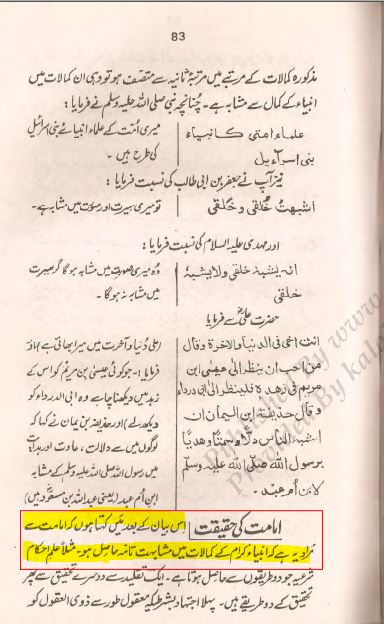 83
مذکورہ کمالات کے مرتبے میں مرتبۂ ثانیہ سے متصف ہو تو وہی ان کمالات میں
انبیاء کے کمال سے مشابہ ہے۔ چنانچہ نبی صلی اللہ علیہ وسلم نے فرمایا:
علماء امتی کانبیاء
بنی اسرآءیل
میری امت کے علماء انبیائے بنی اسرائیل
کی طرح ہیں۔
نیز آپ نے جعفر بن ابی طالب کی نسبت فرمایا:
اشبھت خلقی و خُلقی
تو میری سیرت اور صورت میں مشابہ ہے۔
اور مہدی علیہ السلام کی نسبت فرمایا:
انہ یشبہ خلقی ولا یشبہ
خلقی
وہ میری صورت میں مشابہ ہوگا گر سیرت
میں مشابہ نہ ہوگا۔
حضرت علیؓ سے فرمایا
انت اخی فی الدنیا والاخرۃ وقال
من احب ان ینظر الی عیسی ابن
مریم فی زھدہ فلینظر الی ابی درداء
وقال حذیفۃ ابن الیمان ان
اشبہ الناس دلًا وسمتًا وھدیًا
برسول اللہ صلی اللہ علیہ وسلم
لابن ام عبد۔
علی دنیا و آخرت میں میرا بھائی ہے اور
فرمایا۔ جو کوئی عیسیٰ بن مریم کو اس کے
زہد میں دیکھنا چاہے وہ ابی الدرداء کو
دیکھ لے اور حذیفہ بن یمان نے کہا کہ
لوگوں میں سے دلالت، عادت اور ہدایت
میں رسول اللہ صلی اللہ علیہ وسلم کے مشابہ
ابن ام عبد (یعنی عبداللہ بن مسعود ہیں)
امامت کی حقیقت اس بیان کے بعد میں کہتا ہوں کہ امامت سے
مراد یہ ہے کہ انبیاء کرام کے کمالات میں مشابہت تامہ حاصل ہو۔ مثلاً علم احکام
شرعیہ جو دو طریقوں سے حاصل ہوتا ہے۔ ایک تقلید سے دوسرے تحقیق سے پھر
تحقیق کے دو طریقے ہیں۔ پہلا اجتہاد بشرطیکہ معقول طور سے ذوی العقول کو